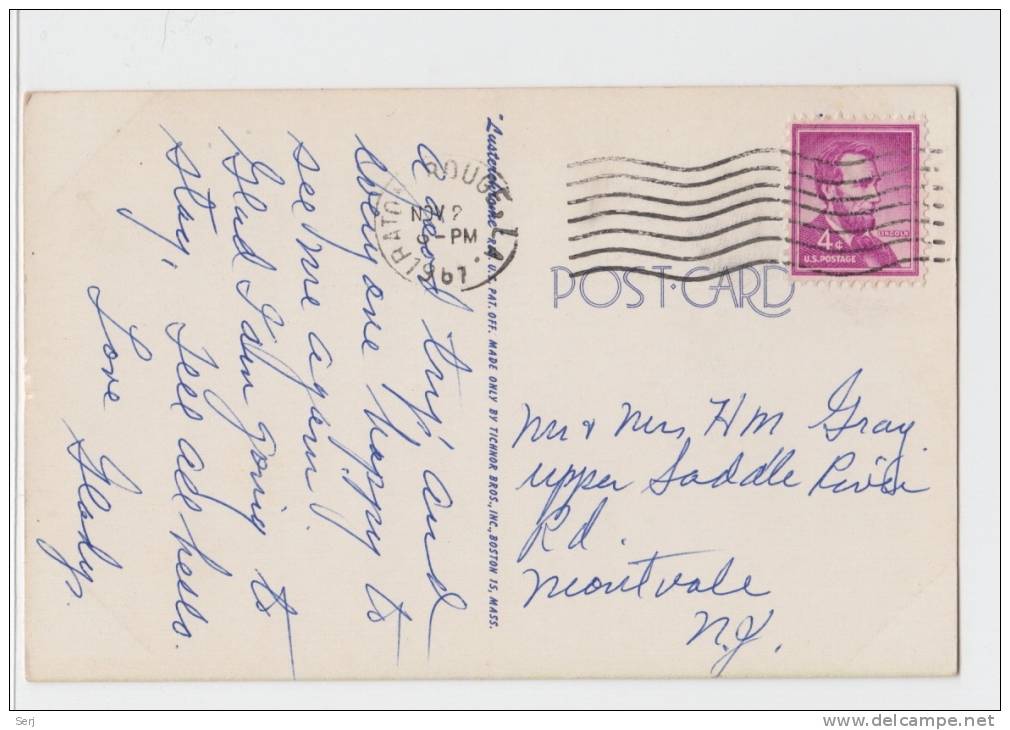 a good trip and
everyone happy to
see me again.
Glad I am going to
stay, Tell all hello.
Love Glady,
"Lusterchrome" REG. U.S. PAT. OFF. MADE ONLY BY TICHNOR BROS., INC., BOSTON 15, MASS.
BATON ROUGE LA.
NOV 2
6 - PM
1961
4¢
LINCOLN
U.S. POSTAGE
POST-CARD
Mr & Mrs H M Gray
upper Saddle River
Rd.
Montvale
N.J.
Serj
www.delcampe.net